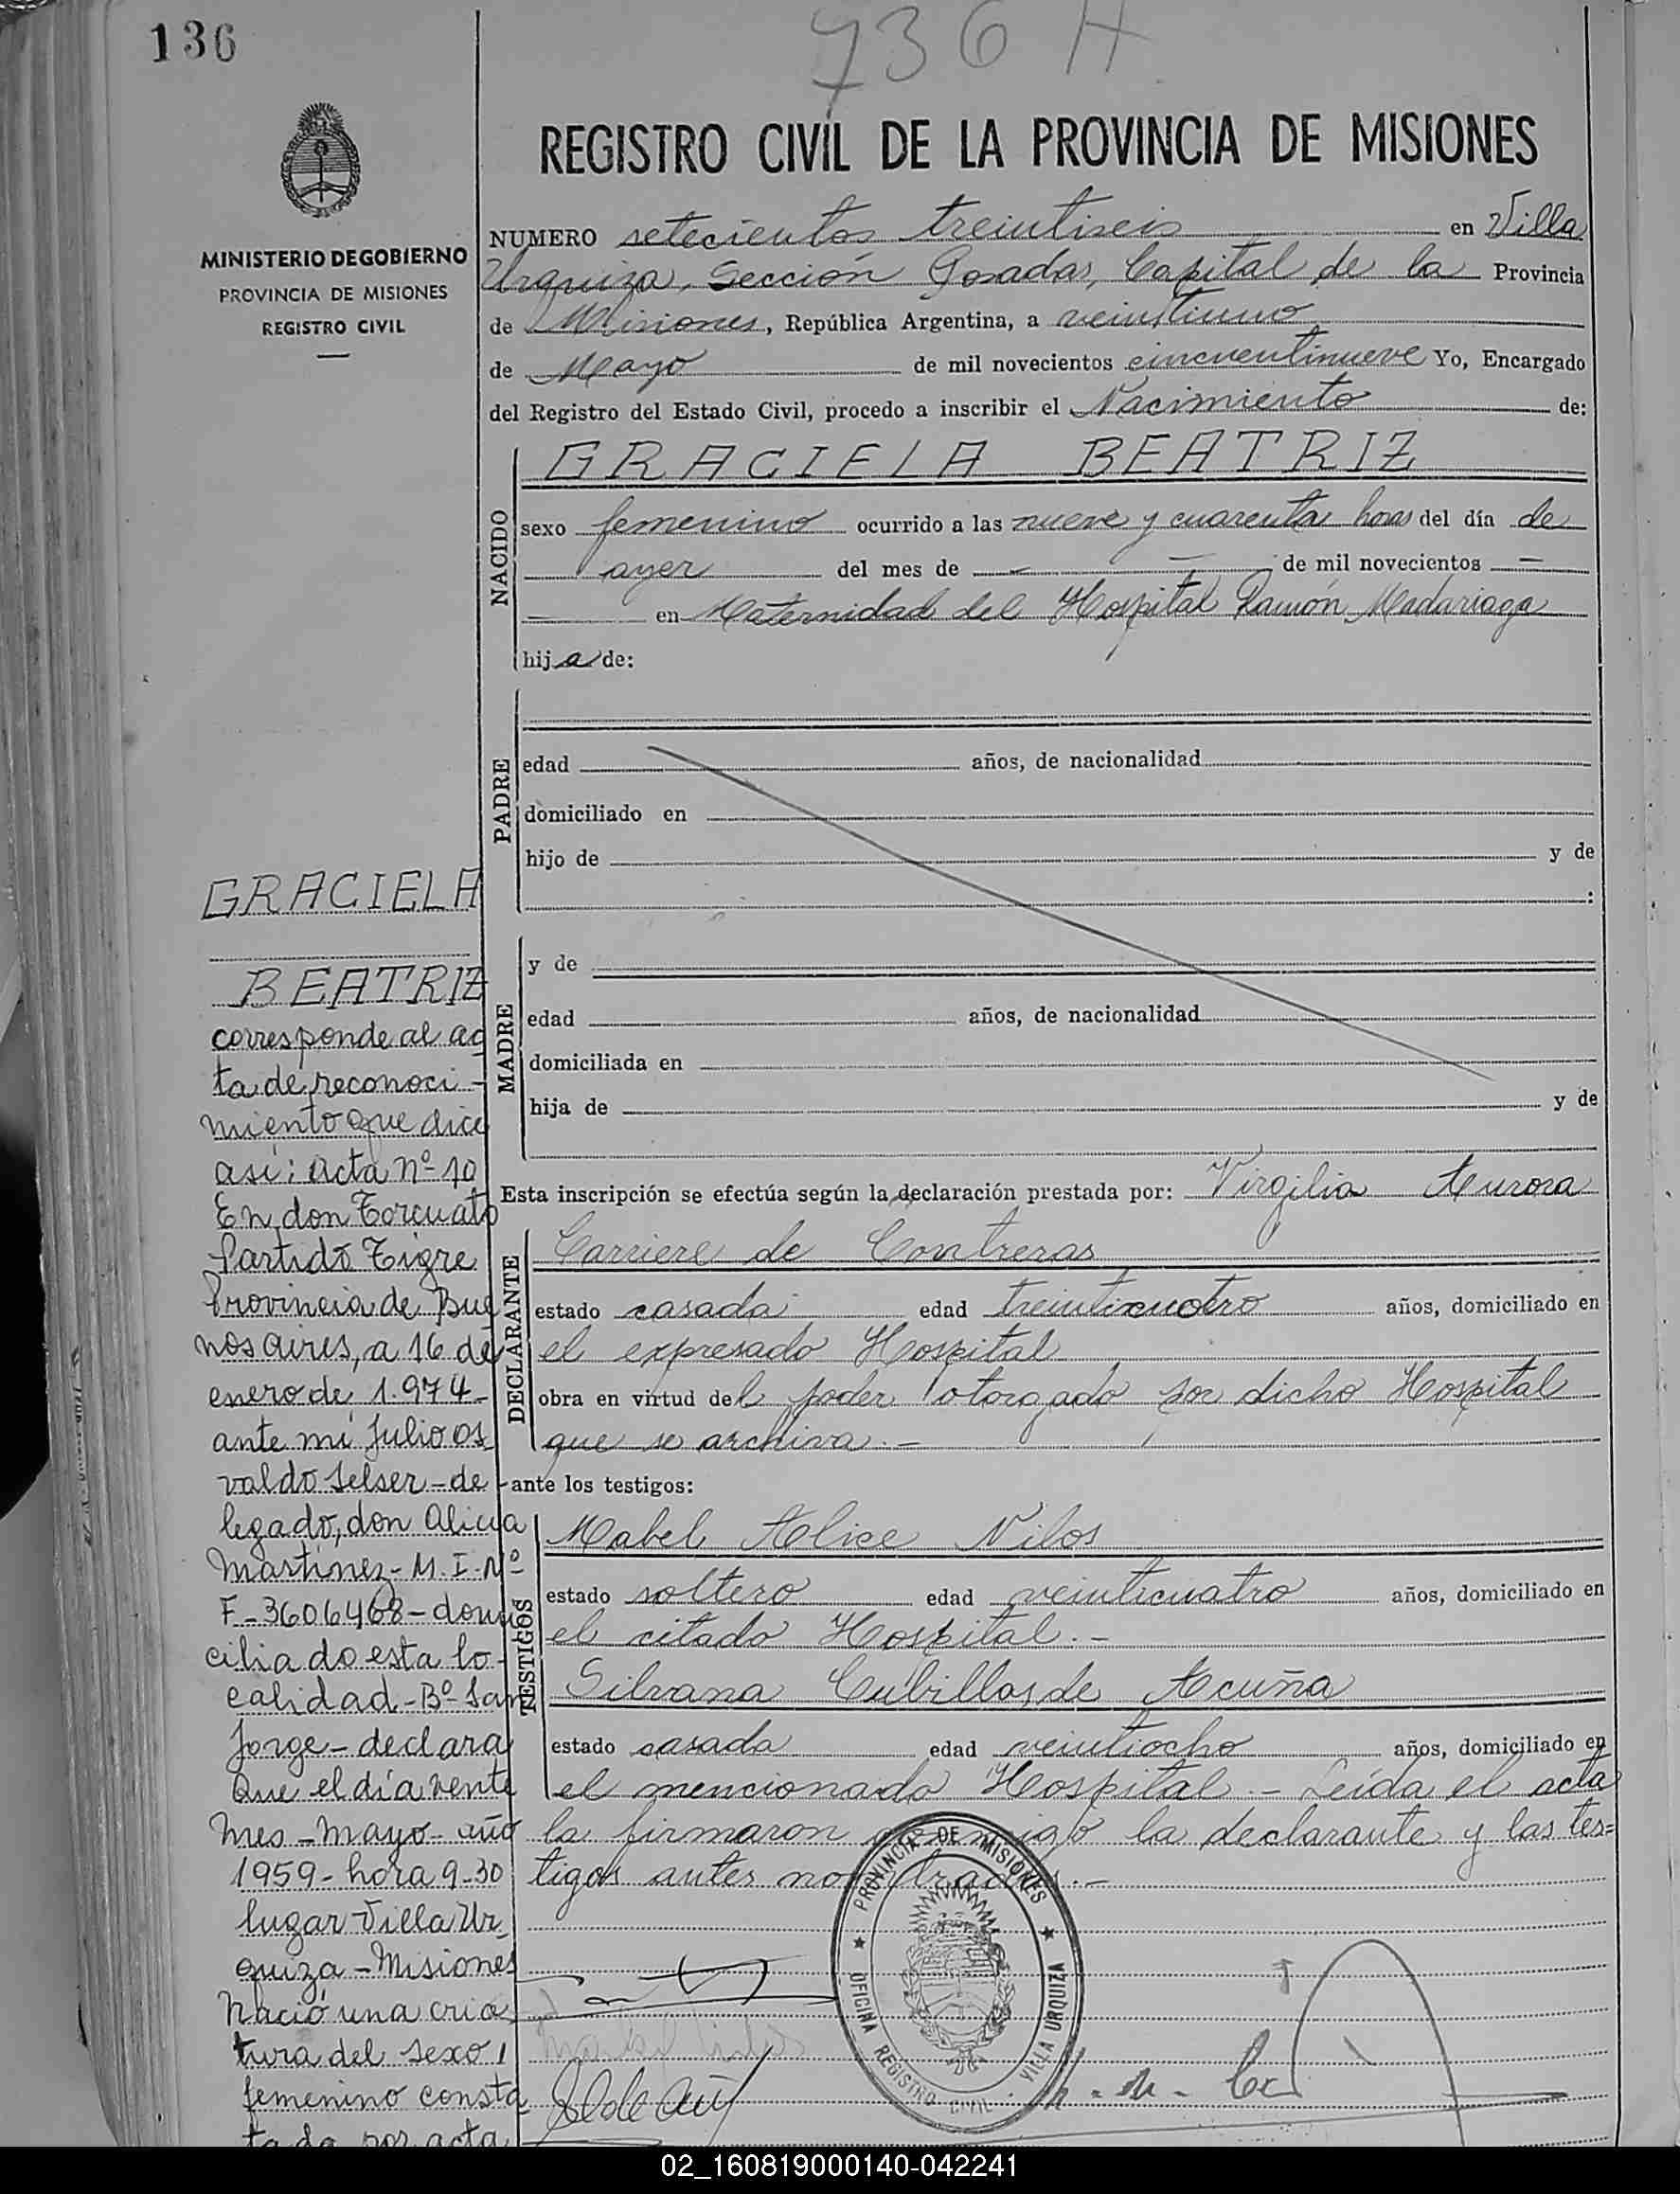 136
736 H
MINISTERIO DE GOBIERNO
PROVINCIA DE MISIONES
REGISTRO CIVIL
REGISTRO CIVIL DE LA PROVINCIA DE MISIONES
NUMERO setecientos treintiseis en Villa
Urquiza, Sección Posadas, Capital de la Provincia
de Misiones, República Argentina, a veintiuno
de Mayo de mil novecientos cincuentinueve Yo, Encargado
del Registro del Estado Civil, procedo a inscribir el Nacimiento de:
NACIDO
GRACIELA BEATRIZ
sexo femenino ocurrido a las nueve y cuarenta horas del día de
ayer del mes de — — de mil novecientos —
— en Maternidad del Hospital Ramón Madariaga
hija de:
PADRE
edad años, de nacionalidad
domiciliado en
hijo de y de
:
MADRE
y de
edad años, de nacionalidad
domiciliada en
hija de y de
Esta inscripción se efectúa según la declaración prestada por: Virgilia Aurora
DECLARANTE
Carriere de Contreras
estado casada edad treinticuatro años, domiciliado en
el expresado Hospital
obra en virtud del poder otorgado por dicho Hospital
que se archiva.-
ante los testigos:
TESTIGOS
Mabel Alice Nilos
estado soltero edad veinticuatro años, domiciliado en
el citado Hospital.-
Silvana Cubillos de Acuña
estado casada edad veintiocho años, domiciliado en
el mencionado Hospital.- Leída el acta
la firmaron conmigo la declarante y las tes=
tigos antes nombrados.-
PROVINCIA DE MISIONES
OFICINA REGISTRO CIVIL VILLA URQUIZA
GRACIELA
BEATRIZ
corresponde al ac
ta de reconoci-
miento que dice
así: Acta Nº 10
En don Torcuato
Partido Tigre
Provincia de Bue
nos aires, a 16 de
enero de 1.974-
ante mí Julio Os
valdo Selser-de-
legado, don Alicia
Martinez- M.I.Nº
F-3606468-domi
ciliado esta lo-
calidad-Bº-San
Jorge-declara
Que el día vente
mes-mayo-año
1959-hora 9-30
lugar-Villa Ur
quiza-Misiones
Nació una cria
tura del sexo
femenino consta
tada por acta
02_160819000140-042241